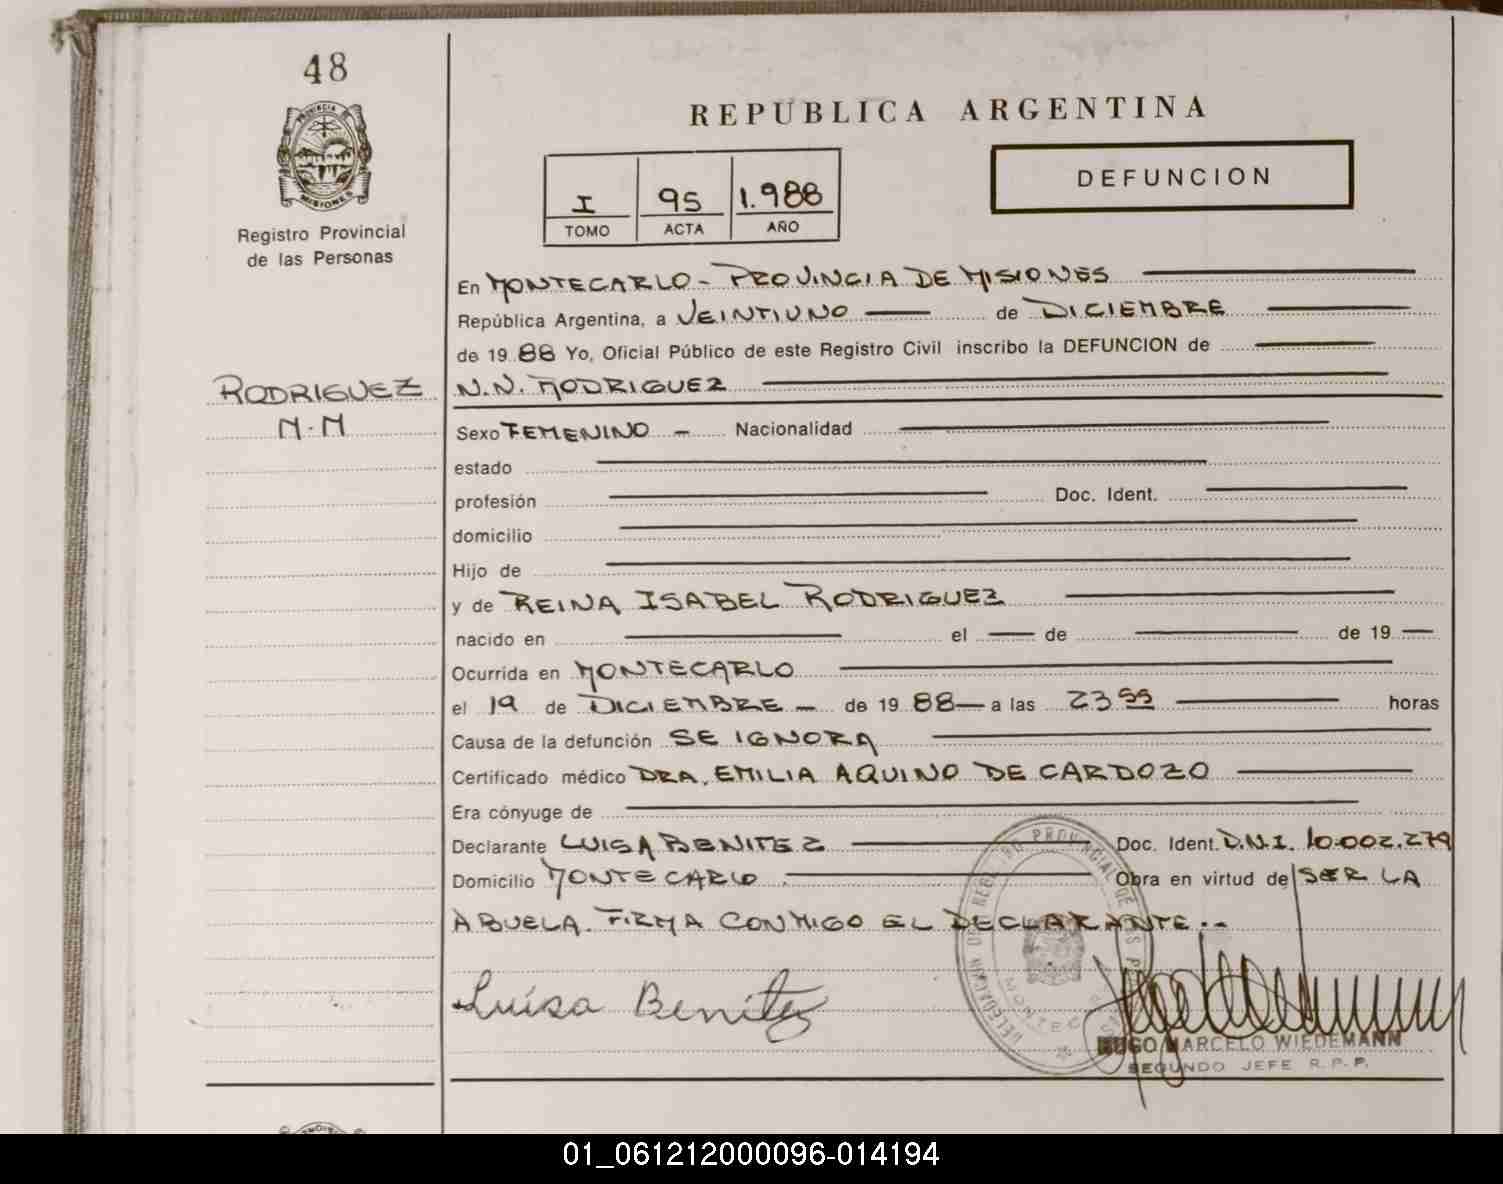 48
PROVINCIA DE
MISIONES
Registro Provincial
de las Personas
RODRIGUEZ
N.N
REPUBLICA ARGENTINA
I 95 1.988
TOMO ACTA AÑO
DEFUNCION
En MONTECARLO - PROVINCIA DE MISIONES
República Argentina, a VEINTIUNO de DICIEMBRE
de 19 88 Yo, Oficial Público de este Registro Civil inscribo la DEFUNCION de
N.N. RODRIGUEZ
Sexo FEMENINO - Nacionalidad
estado
profesión Doc. Ident.
domicilio
Hijo de
y de REINA ISABEL RODRIGUEZ
nacido en el de de 19
Ocurrida en MONTECARLO
el 19 de DICIEMBRE - de 19 88 a las 23 55 horas
Causa de la defunción SE IGNORA
Certificado médico DRA. EMILIA AQUINO DE CARDOZO
Era cónyuge de
Declarante LUISA BENITEZ Doc. Ident. D.N.I. 10.002.279
Domicilio MONTECARLO. Obra en virtud de SER LA
ABUELA. FIRMA CONMIGO EL DECLARANTE.-
Luisa Benitez
HUGO MARCELO WIEDEMANN
SEGUNDO JEFE R.P.P.
01_061212000096-014194